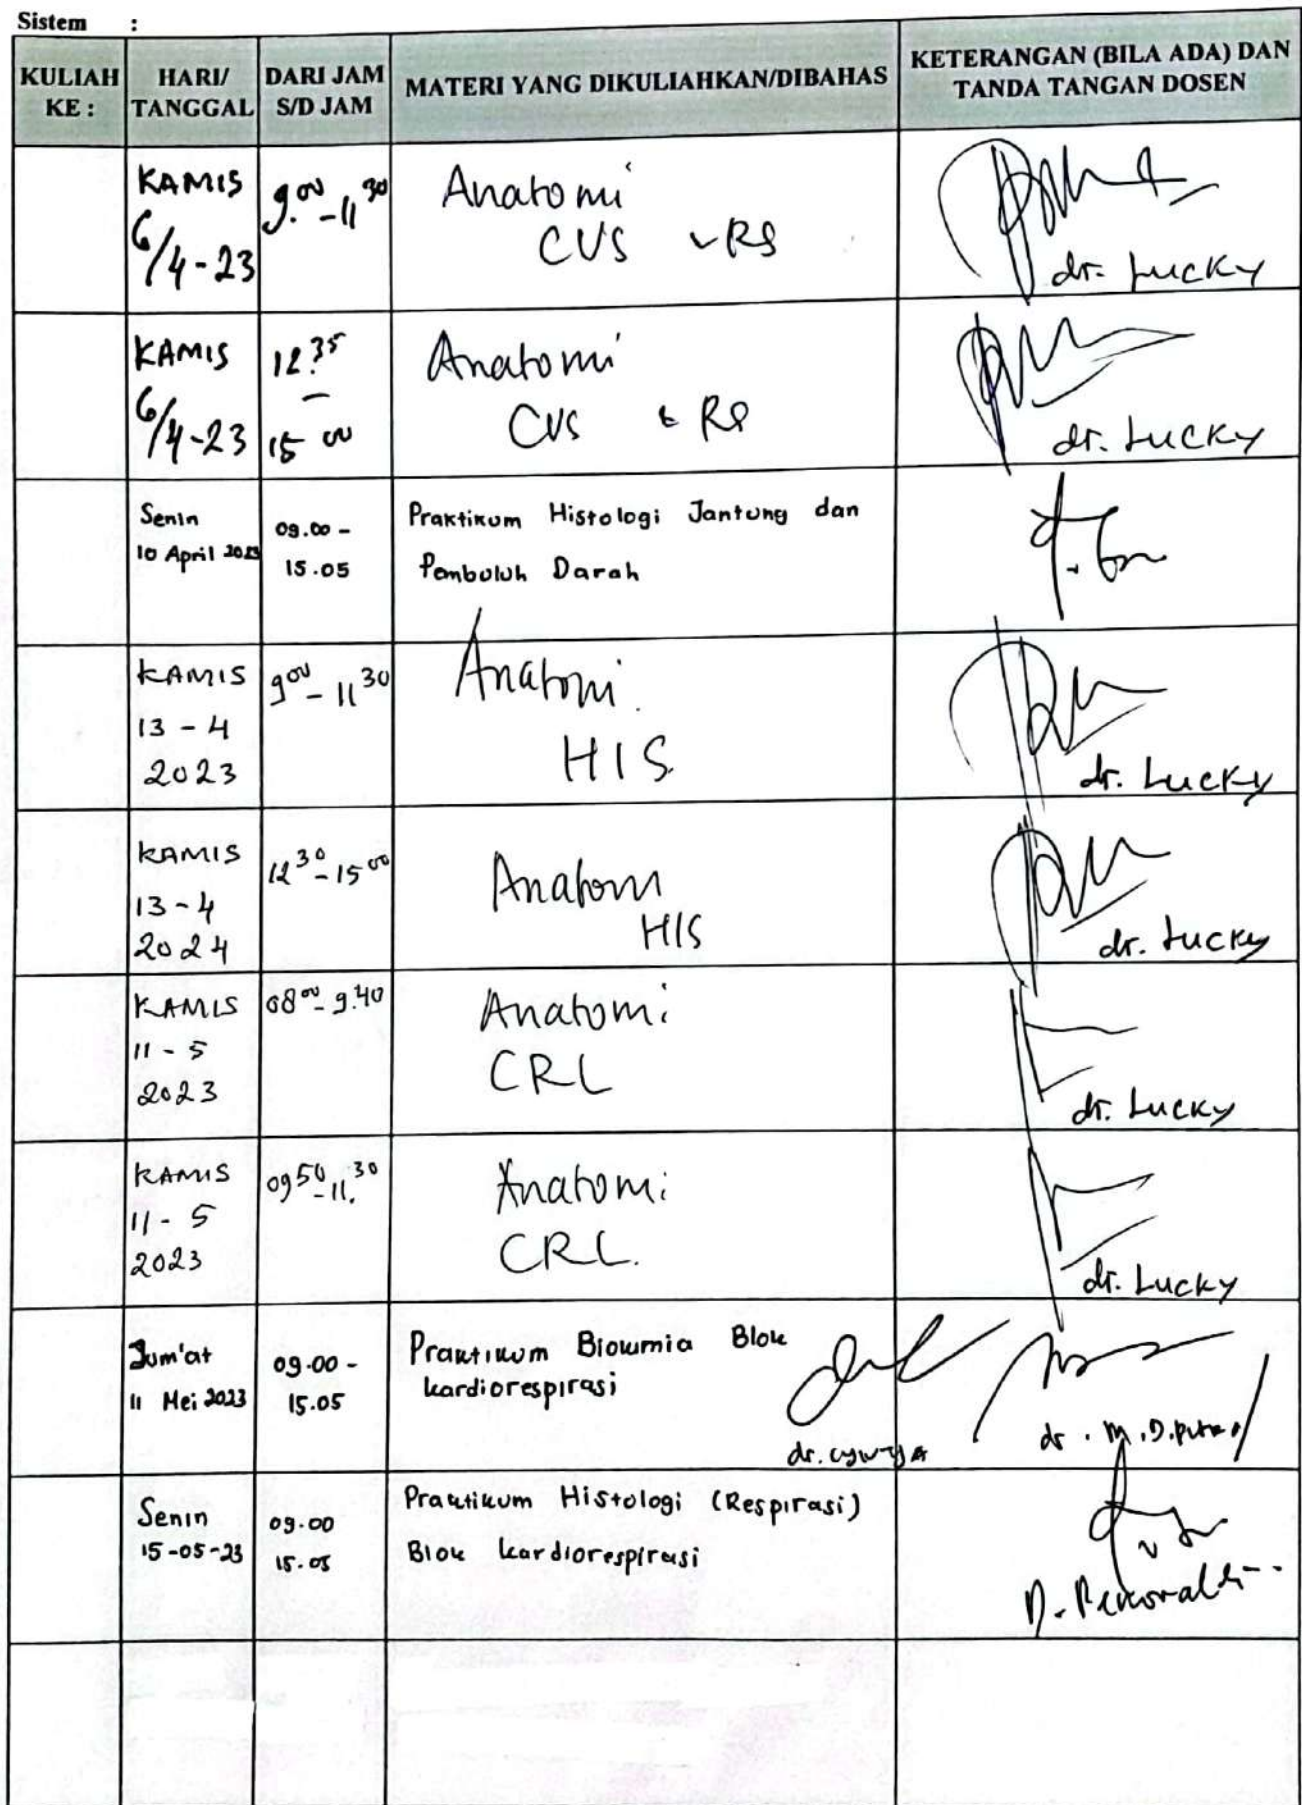 Sistem :
KULIAH KE :
HARI/ TANGGAL
DARI JAM S/D JAM
MATERI YANG DIKULIAHKAN/DIBAHAS
KETERANGAN (BILA ADA) DAN TANDA TANGAN DOSEN
KAMIS
6/4-23
9.00-11 30
Anatomi
CVS RS
dr. Lucky
KAMIS
6/4-23
12.35
–
15 00
Anatomi
CVS & RS
dr. Lucky
Senin
10 April 2023
09.00 -
15.05
Praktikum Histologi Jantung dan
Pembuluh Darah
KAMIS
13 - 4
2023
9 00 - 11 30
Anatomi
HIS
dr. Lucky
KAMIS
13 - 4
2024
12 30 - 15 00
Anatomi
HIS
dr. Lucky
KAMIS
11 - 5
2023
08 00 - 9.40
Anatomi
CRL
dr. Lucky
KAMIS
11 - 5
2023
09 50 - 11. 30
Anatomi
CRL.
dr. Lucky
Jum'at
11 Mei 2023
09.00 -
15.05
Praktikum Biokimia Blok
kardiorespirasi
dr.
dr. M.D.
Senin
15-05-23
09.00
15.05
Praktikum Histologi (Respirasi)
Blok kardiorespirasi